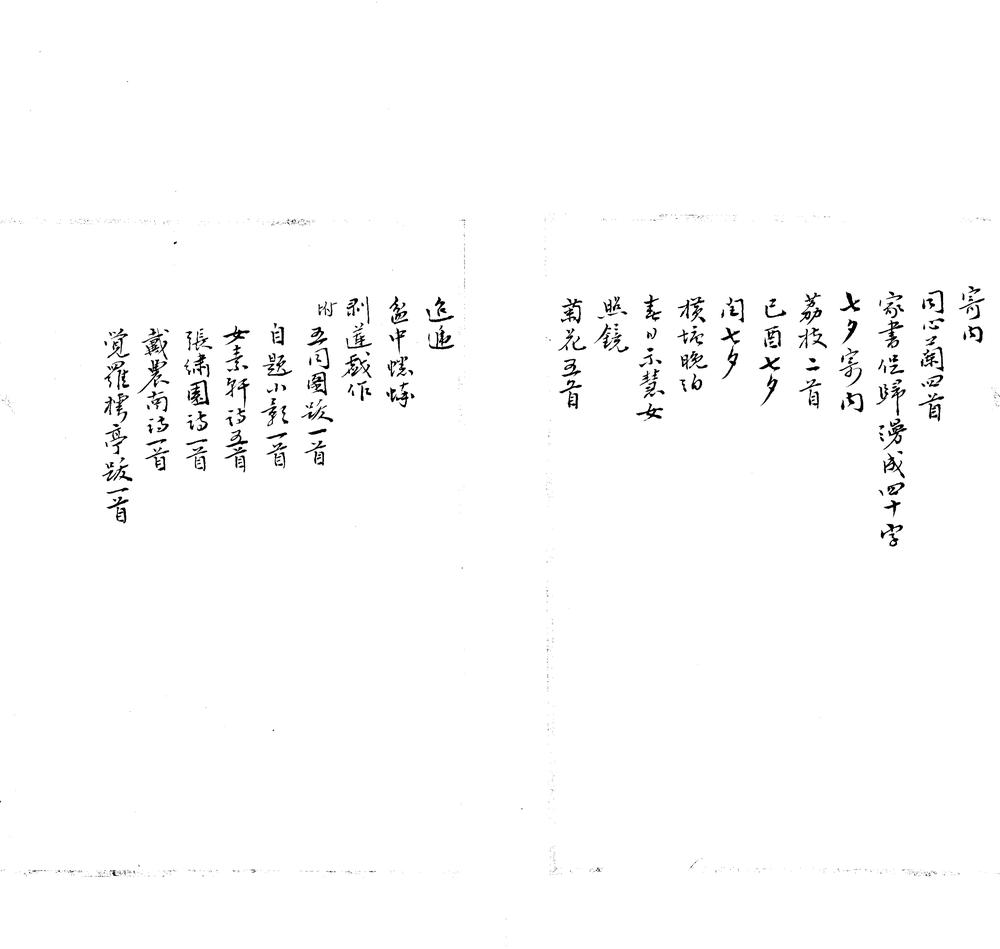 寄内
同心蘭四首
家書促歸漫成四十字
七夕寄内
荔枝二首
己酉七夕
閏七夕
橫塘晚泊
春日示慧女
照鏡
菊花五首
迢遞
盆中蟋蟀
剥蓮戲作
附五同圖跋一首
自題小影一首
女素軒詩五首
張繡園詩一首
戴農南詩一首
覺羅樗亭跋一首